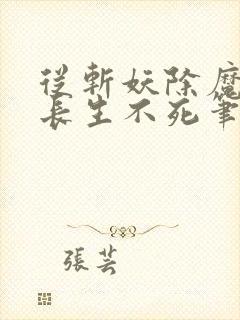 從斬妖除魔
長生不死筆
張芸